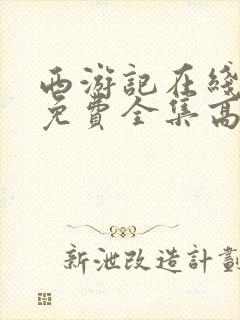 西游記在綫
免費全集高
新泄改造計劃